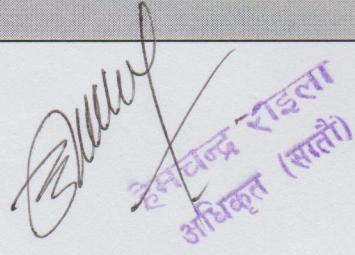 हेमचन्द्र रोइला
अधिकृत (सातौं)